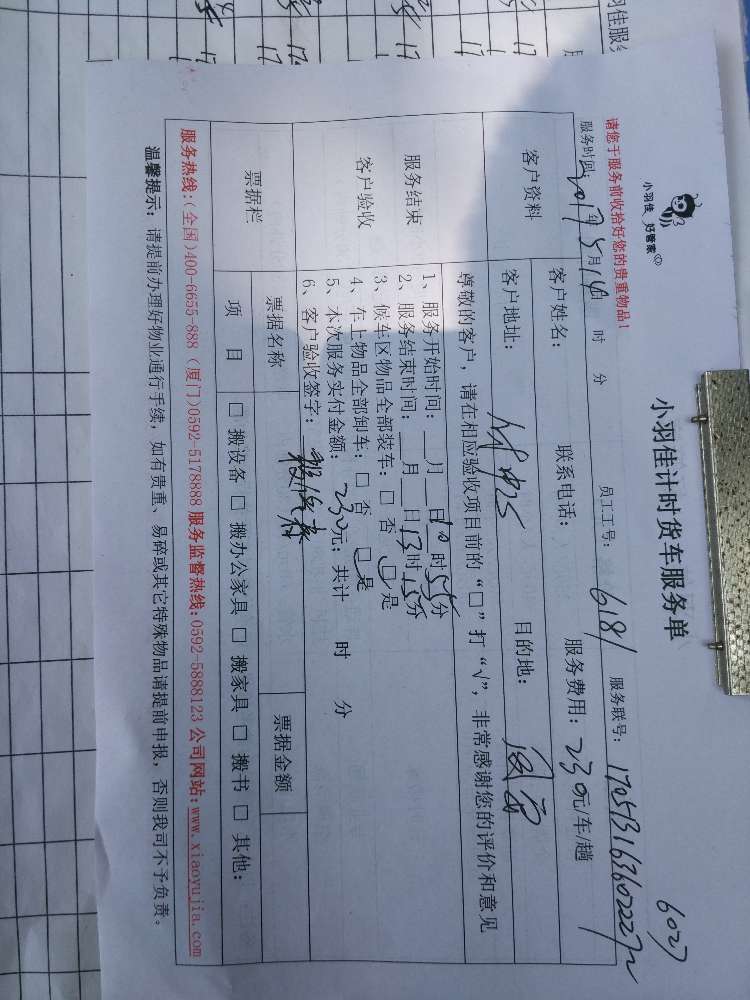 小羽佳 好管家
小羽佳计时货车服务单
6027
请您于服务前收拾好您的贵重物品!
服务时间: 2017年5月14日 时 分 员工工号: 6181 服务联号:
客户资料
客户姓名: 联系电话: 服务费用: 230元/车/趟
客户地址: 目的地:
服务结束
客户验收
尊敬的客户，请在相应验收项目前的“□”打“√”，非常感谢您的评价和意见
1、服务开始时间: 月 日10时55分
2、服务结束时间: 月 日13时15分
3、候车区物品全部装车: □ 否 □ 是
4、车上物品全部卸车: □ 否 □ 是
5、本次服务实付金额: 230元; 共计 时 分
6、客户验收签字:
票据栏
票据名称 票据金额
项 目 □ 搬设备 □ 搬办公家具 □ 搬家具 □ 搬书 □ 其他:
服务热线:(全国)400-6655-888 (厦门)0592-5178888 服务监督热线:0592-5888123 公司网站:www.xiaoyujia.com
温馨提示: 请提前办理好物业通行手续, 如有贵重、易碎或其它特殊物品请提前申报, 否则我司不予负责。